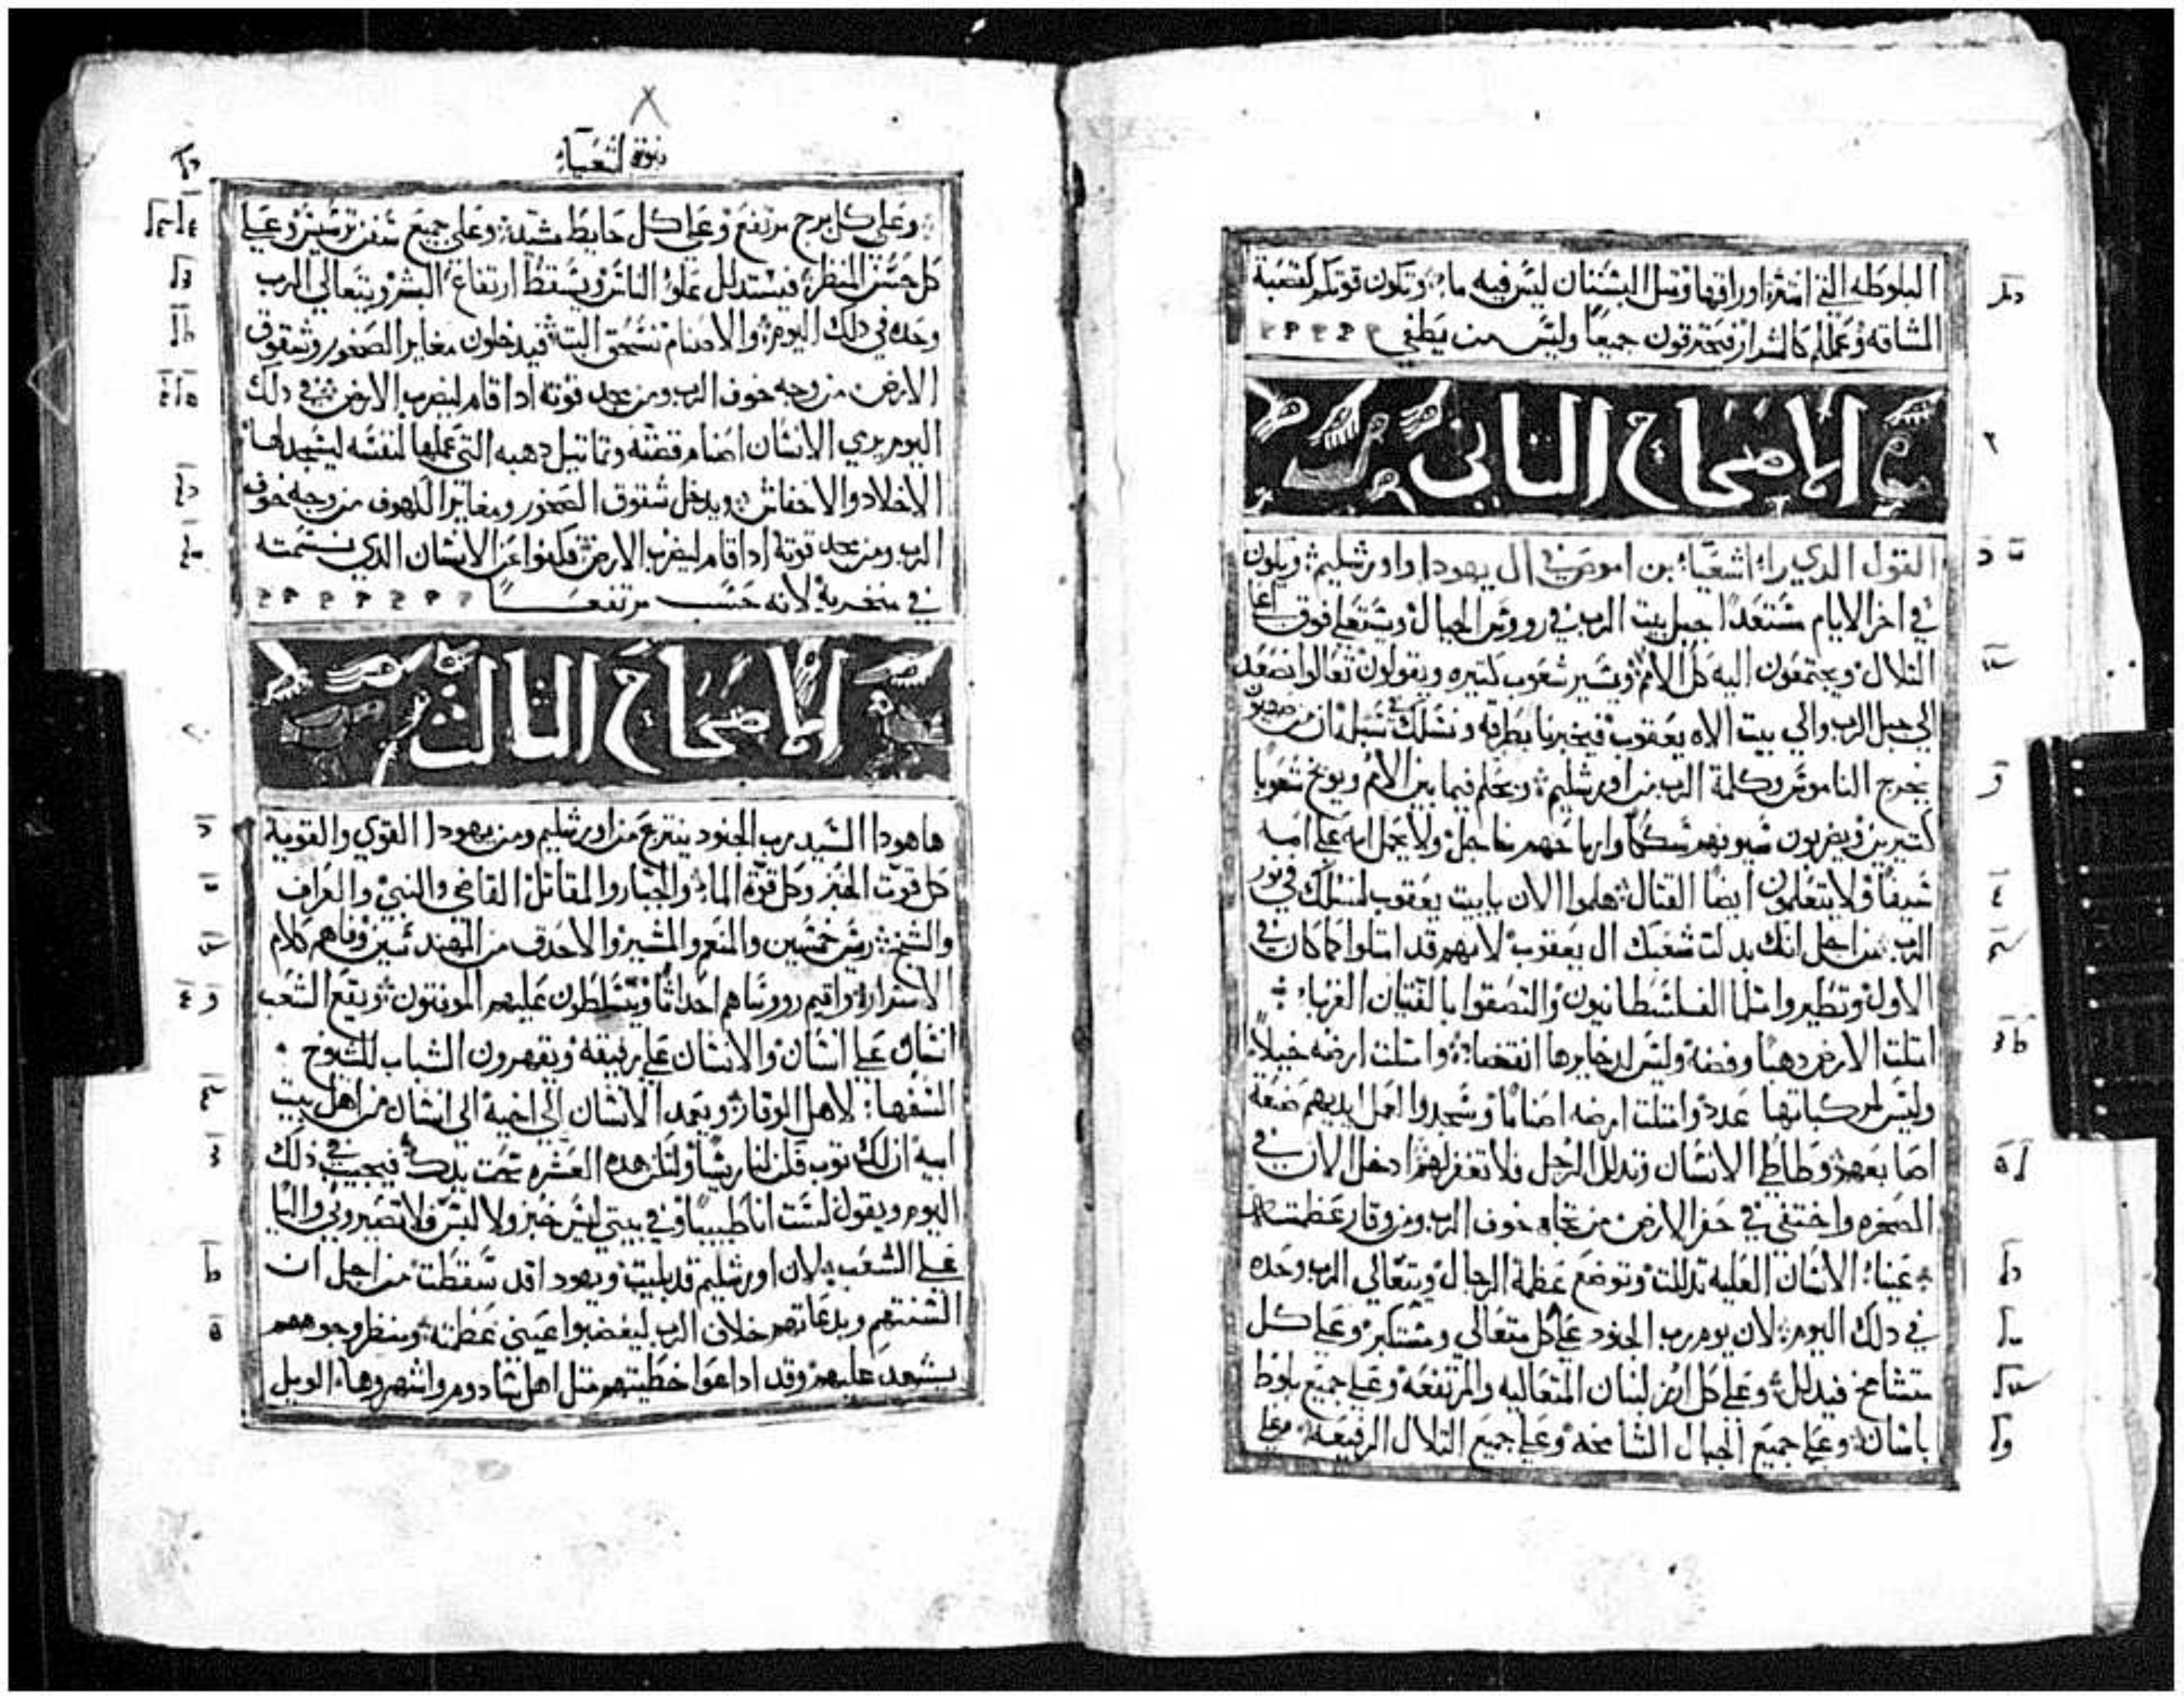 البلوطه التي انتثر اوراقها ومثل البستان ليس فيه ما؛ وتكون قوتكم كقصبة
الشاقه وعملكم كالشرار فيحترقون جميعًا وليس من يطفي
الاصحاح الثاني
القول الذي راه اشعياء بن اموص في ال يهودا واورشليم؛ ويكون
في اخر الايام مستعدًا جبل بيت الرب في رووس الجبال ويستعلي فوق اعلا
التلال ويجتمعون اليه كل الامم وتسير شعوب كتيره ويقولون تعالوا نصعد
الي جبل الرب والي بيت الاه يعقوب فيخبرنا بطرقه ونسلك في سبله ان من صهيون
يخرج الناموس وكلمة الرب من اورشليم؛ ويحكم فيما بين الامم ويوبخ شعوبا
كتيرين ويضربون سيوفهم سككًا وارماحهم مناجل ولا يحمل امه علي امه
سيفًا ولا يتعلمون ايضا القتال؛ هلموا الان يا بيت يعقوب لنسلك في نور
الرب من اجل انك بدلت شعبك ال يعقوب لانهم قد امتلوا كما كان في
الاول وتطيروا مثلما الفلسطانيون والتصقوا بالفتيان الغرباء
امتلت الارض دهبًا وفضه وليس لدخايرها انقضا؛ وامتلت ارضه خيلاً
وليس لمركباتها عدد وامتلت ارضه اصنامًا وسجدوا لعمل ايديهم صنعة
اصابعهم وطاطي الانسان وتدلل الرجل فلا تغفر لهم ادخل الان في
الصخره واختفي في حفر الارض من تجاه خوف الرب ومن وقار عظمته
عينا الانسان العليه تدللت وتوضع عظمة الرجال ويتعالي الرب وحده
في دلك اليوم؛ لان يوم رب الجنود علي كل متعالي ومستكبر وعلي كل
متشامخ فيدلل وعلي كل ارز لبنان المتعاليه والمرتفعه وعلي جميع بلوط
باسان وعلي جميع الجبال الشامخه وعلي جميع التلال الرفيعه؛ وعلي
نبوة اشعياء
وعلي كل برج مرتفع وعلي كل حايط مشيد؛ وعلي جميع سفن ترسيس وعلي
كل حسن المنظر؛ فيستدلل علو الناس ويسقط ارتفاع البشر ويتعالي الرب
وحده في دلك اليوم؛ والاصنام تنسحق البتة فيدخلون مغاير الصخور وشقوق
الارض من وجه خوف الرب ومن مجد قوته ادا قام ليضرب الارض في دلك
اليوم يري الانسان اصنام فضته وتماتيل دهبه التي عملها لنفسه ليسجد لها
الاخلاد والاخفاش؛ ويدخل شقوق الصخور ومغاير الكهوف من وجه خوف
الرب ومن مجد قوته ادا قام ليضرب الارض فكفوا عن الانسان الدي نسمته
في منخريه لانه حسب مرتفعًا
الاصحاح الثالث
ها هودا السيد رب الجنود ينترع من اورشليم ومن يهودا القوي والقوية
كل قوت الخبز وكل قوة الما؛ والجبار والمقاتل القاضي والنبي والعراف
والشيخ؛ ريس خمسين والمنعم والمشير والاحدق من المهندسين وفاهم كلام
الاسرار؛ واقيم رووساهم احداثا ويتسلطون عليهم الموننون؛ ويقع الشعب
انسان علي انسان والانسان علي رفيقه ويقهرون الشباب للشيوخ
السفها؛ لاهل الوقار؛ ويعمد الانسان الي اخيه الي انسان من اهل بيت
ابيه ان لك توب فكن لنا ريسًا ولتكن هده العشره تحت يدك؛ فيجيب في ذلك
اليوم ويقول لست انا طبيبًا وفي بيتي ليس خبز ولا لبس فلا تصيروني واليا
علي الشعب؛ لان اورشليم قد بليت ويهودا قد سقطت من اجل ان
السنتهم وبدعاتهم خلاف الرب ليغضبوا عيني عظمته؛ ومنظر وجوههم
يشهد عليهم وقد اداعوا خطيتهم مثل اهل سادوم واشهروها؛ الويل